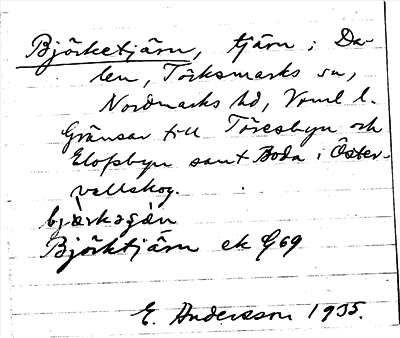 Björketjärn, tjärn i Da-
len, Töcksmarks sn,
Nordmarks hd, Vrml l.
Gränsar till Töresbyn och
Elofsbyn samt Boda i Öster-
vallskog.
Björktjärn ek G69
E. Andersson 1935.